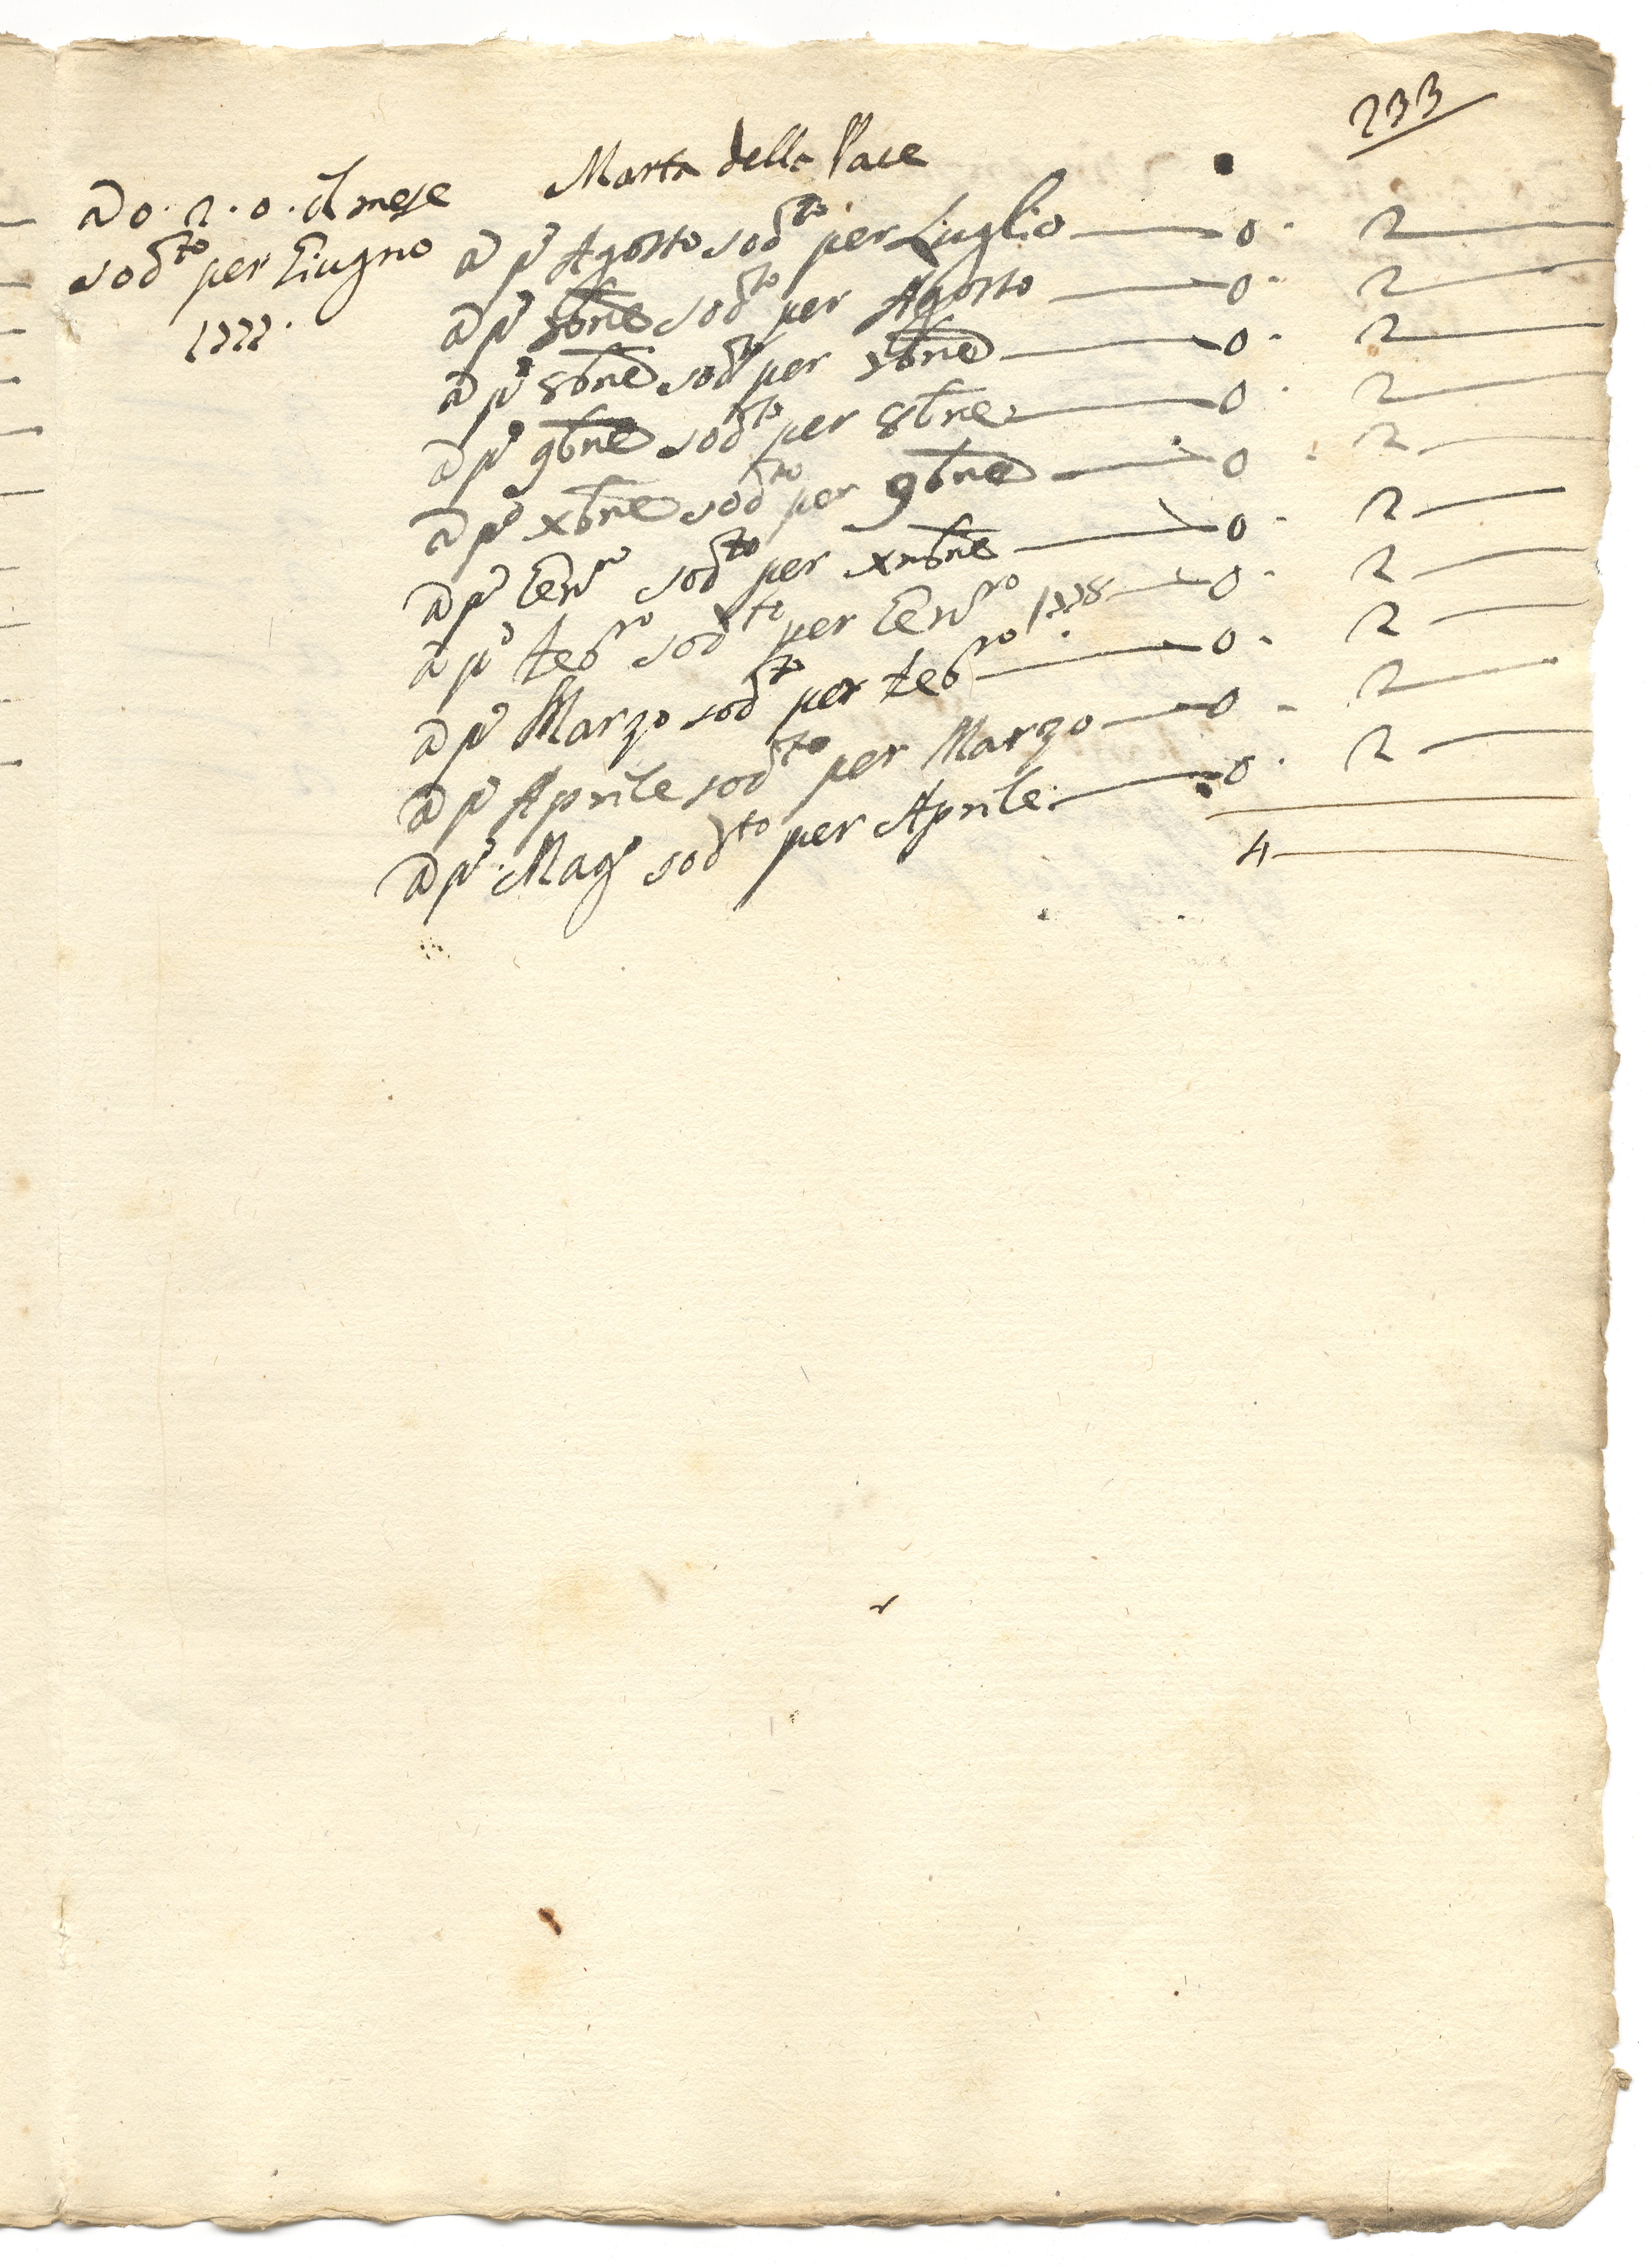 233
Marta della Pace
a 0. 2. 0. il mese
sod.to per Giugno
1777.
a p.o Agosto sod.to per Luglio — 0. 2 —
a p.o 7bre sod.to per Agosto — 0. 2 —
a p.o 8bre sod.to per 7bre — 0. 2 —
a p.o 9bre sod.to per 8bre — 0. 2 —
a p.o xbre sod.to per 9bre — 0. 2 —
a p.o Gen.ro sod.to per xmbre — 0. 2 —
a p.o Feb.ro sod.to per Gen.ro 1778 — 0. 2 —
a p.o Marzo sod.to per Feb.ro — 0. 2 —
a p.o Aprile sod.to per Marzo — 0. 2 —
a p.o Mag.o sod.to per Aprile — 0. 2 —
4 —